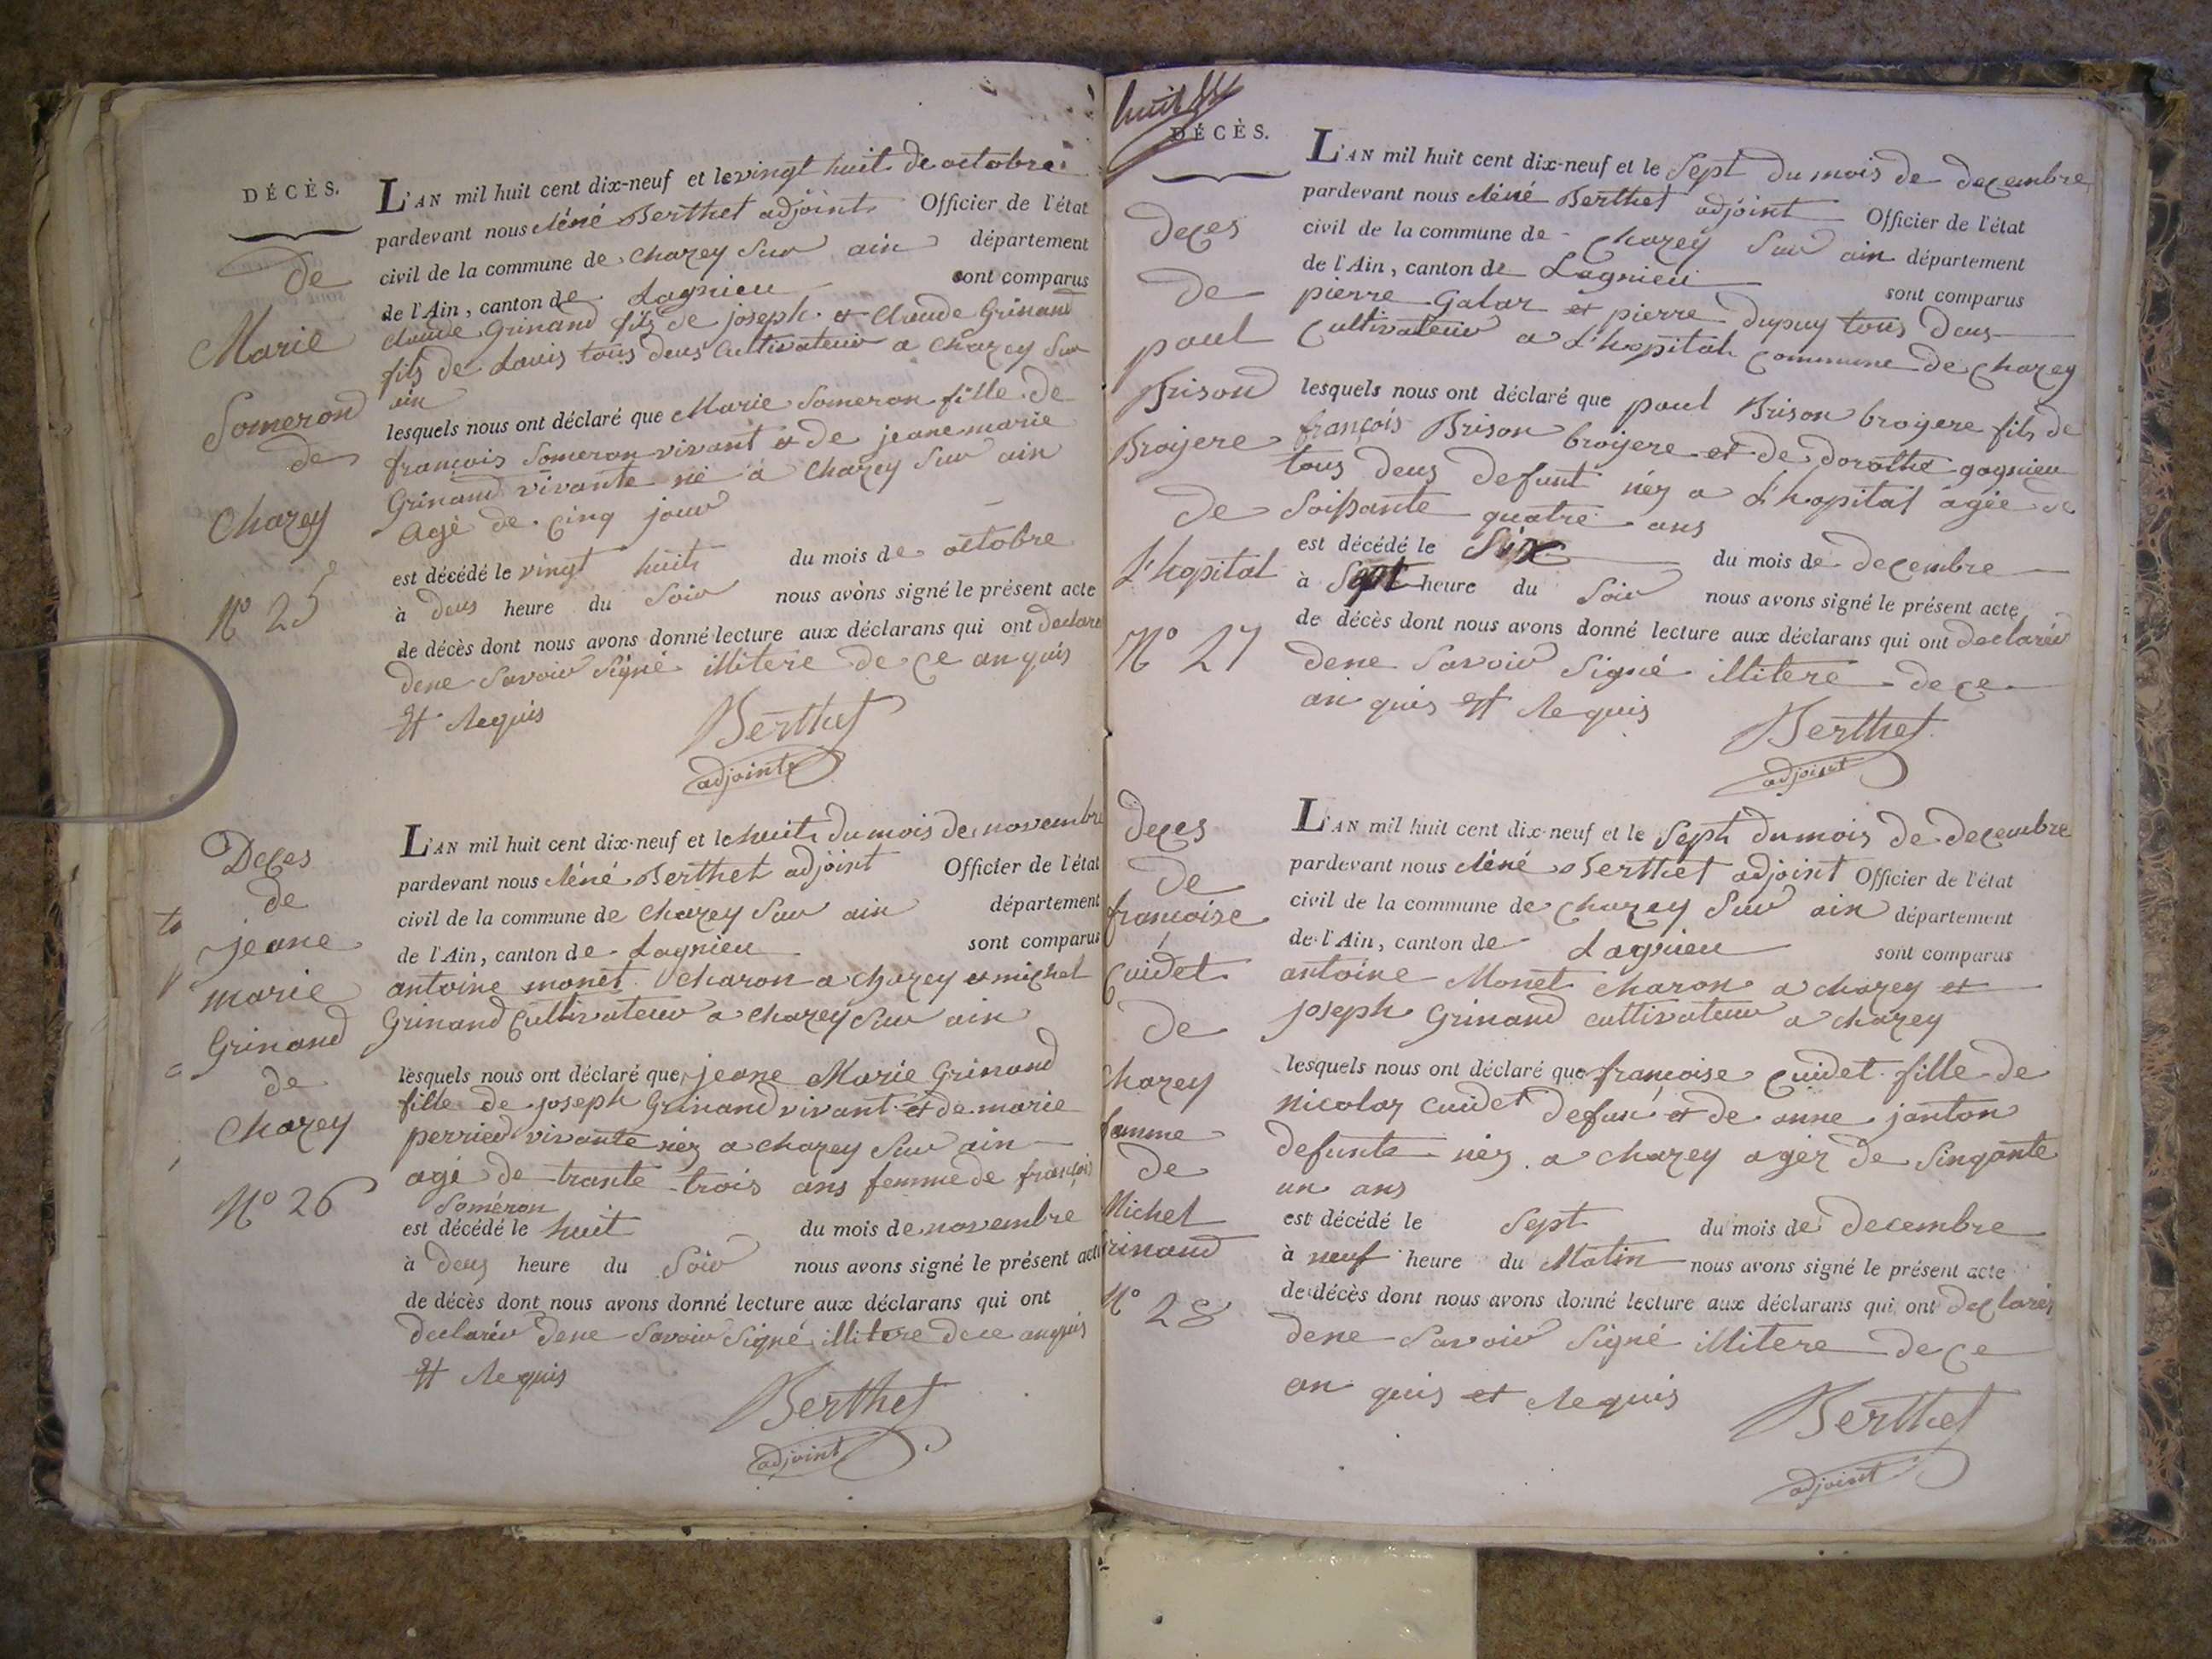 DÉCÈS.
de
Marie
Someron
de
Chazey
N° 25
L'AN mil huit cent dix-neuf et le vingt huit de octobre
pardevant nous Réné Berthet adjoint Officier de l'état
civil de la commune de Chazey Sur ain département
de l'Ain, canton de Lagnieu sont comparus
Claude Grinand fils de joseph et Claude Grinand
fils de Louis tous deus Cultivateur a Chazey Sur
ain
lesquels nous ont déclaré que Marie Someron fille de
francois Someron vivant et de jeane marie
Grinand vivante né a Chazey Sur ain
Agé de Cinq jour
est décédé le vingt huit du mois de octobre
à deus heure du Soir nous avons signé le présent acte
de décès dont nous avons donné lecture aux déclarans qui ont declaré
dene Savoir Signé illitere de ce anquis
et Requis
Berthet
adjoint
Deces
de
jeane
marie
Grinand
de
Chazey
N° 26
L'AN mil huit cent dix-neuf et le huit du mois de novembre
pardevant nous Réné Berthet adjoint Officier de l'état
civil de la commune de Chazey Sur ain département
de l'Ain, canton de Lagnieu sont comparus
antoine monet Charon a Chazey et michel
Grinand Cultivateur a Chazey Sur ain
lesquels nous ont déclaré que jeane Marie Grinand
fille de joseph Grinand vivant et de marie
perrier vivante néz a chazey Sur ain
agé de trante trois ans femme de françois
Someron
est décédé le huit du mois de novembre
à deus heure du Soir nous avons signé le présent acte
de décès dont nous avons donné lecture aux déclarans qui ont
declarér dene Savoir Signé illitere de ce anquis
et Requis
Berthet
adjoint
huit
DÉCÈS.
deces
de
paul
Brison
Broyere
de
L'hopital
N° 27
L'AN mil huit cent dix-neuf et le Sept du mois de decembre
pardevant nous Réné Berthet adjoint Officier de l'état
civil de la commune de Chazey Sur ain département
de l'Ain, canton de Lagnieu sont comparus
pierre Galar et pierre dupuy tous deus
Cultivateur a L'hopital Commune de Chazey
lesquels nous ont déclaré que paul Brison broyere fils de
françois Brison broyere et de dorothé gagnieu
tous deus defunt néz a L'hopital agée de
Soissante quatre ans
est décédé le Six du mois de decembre
à Sept heure du Soir nous avons signé le présent acte
de décès dont nous avons donné lecture aux déclarans qui ont declarér
dene Savoir Signé illitere de ce
an quis et Requis
Berthet
adjoint
deces
de
françoise
Cuidet
de
Chazey
famme
de
Michel
Grinand
N° 28
L'AN mil huit cent dix-neuf et le Sept du mois de decembre
pardevant nous Réné Berthet adjoint Officier de l'état
civil de la commune de Chazey Sur ain département
de l'Ain, canton de Lagnieu sont comparus
antoine Monet Charon a chazey et
joseph Grinand cultivateur a chazey
lesquels nous ont déclaré que françoise Cuidet fille de
nicolas Cuidet defun et de anne janton
defunte néz a chazey agéz de Sinqante
un ans
est décédé le Sept du mois de decembre
à neuf heure du Matin nous avons signé le présent acte
de décès dont nous avons donné lecture aux déclarans qui ont declaréz
dene Savoir Signé illitere de ce
an quis et Requis
Berthet
adjoint